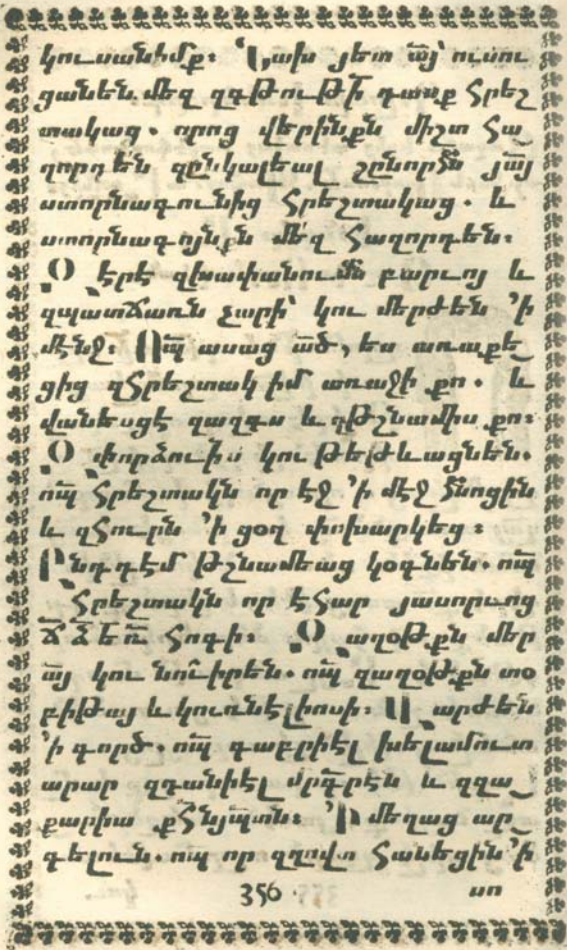 կուսանիմք։ Նախ յետ ա՟յ ուսու
ցանեն մեզ զգթութի՟ դասք հրեշ
տակաց. որոց վերինքն միշտ հա
ղորդ են զընկալեալ շընորհս՟ յա՟յ
ստորնագունից հրեշտակաց. և
ստորնագոյնքն մեզ հաղորդեն։
Օ էրէ զխափանումն՟ բարւոյ և
զպատճառն չարի՝ կու մերժեն ՚ի
մէնջ։ Ո՟պ ասաց ա՟ծ, ես առաքե
ցից զհրեշտակ իմ առաջի քո. և
վանեսցէ զազգս և զթշնամիս քո։
Օ փորձութիս կու թեթևացնեն.
ո՟պ հրեշտակն որ էջ ՚ի մէջ հնոցին
և զհուրն ՚ի ցօղ փոխարկեց։
Ընդդէմ թշնամեաց կօգնեն. ո՟պ
հրեշտակն որ էհար յասորւոց
ՃՁԵՌ՟ հոգի։ Օ աղօթքն մեր
ա՟յ կու նուիրեն. ո՟պ զաղօթքն տօ
բիթայ և կուռնէլիոսի։ Ա արժեն
՚ի գործ. ո՟պ գաբրիէլ խելամուտ
արար զդանիէլ մրգ՟րէն և զզա
քարիա քհ՟նյպ՟տն։ ՚Ի մեղաց ար
գելուն. ո՟պ որ զղովտ հանեցին ՚ի
356 սո